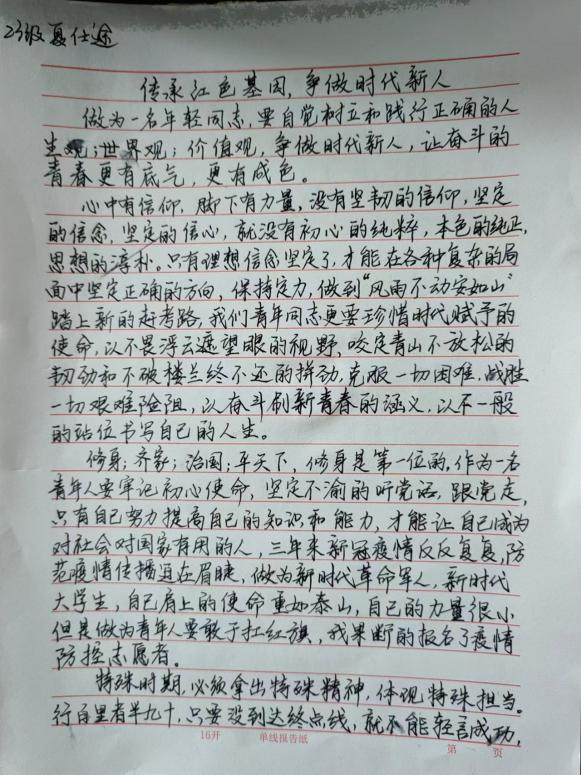 23级夏仕途
传承红色基因,争做时代新人
做为一名年轻同志,要自觉树立和践行正确的人
生观;世界观;价值观,争做时代新人,让奋斗的
青春更有底气,更有成色。
心中有信仰,脚下有力量,没有坚韧的信仰,坚定
的信念,坚定的信心,就没有初心的纯粹,本色的纯正,
思想的淳朴。只有理想信念坚定了,才能在各种复杂的局
面中坚定正确的方向,保持定力,做到“风雨不动安如山”
踏上新的赶考路,我们青年同志更要珍惜时代赋予的
使命,以不畏浮云遮望眼的视野,咬定青山不放松的
韧劲和不破楼兰终不还的拼劲,克服一切困难,战胜
一切艰难险阻,以奋斗刷新青春的涵义,以不一般
的站位书写自己的人生。
修身;齐家;治国;平天下,修身是第一位的,作为一名
青年人要牢记初心使命,坚定不渝的听党话,跟党走,
只有自己努力提高自己的知识和能力,才能让自己成为
对社会对国家有用的人,三年来新冠疫情反反复复,防
范疫情传播迫在眉睫,做为新时代革命军人,新时代
大学生,自己肩上的使命重如泰山,自己的力量很小
但是做为青年人要敢于扛红旗,我果断的报名了疫情
防控志愿者。
特殊时期,必须拿出特殊精神,体现特殊担当。
行百里者半九十,只要没到达终点线,就不能轻言成功,
16开 单线报告纸 第 页